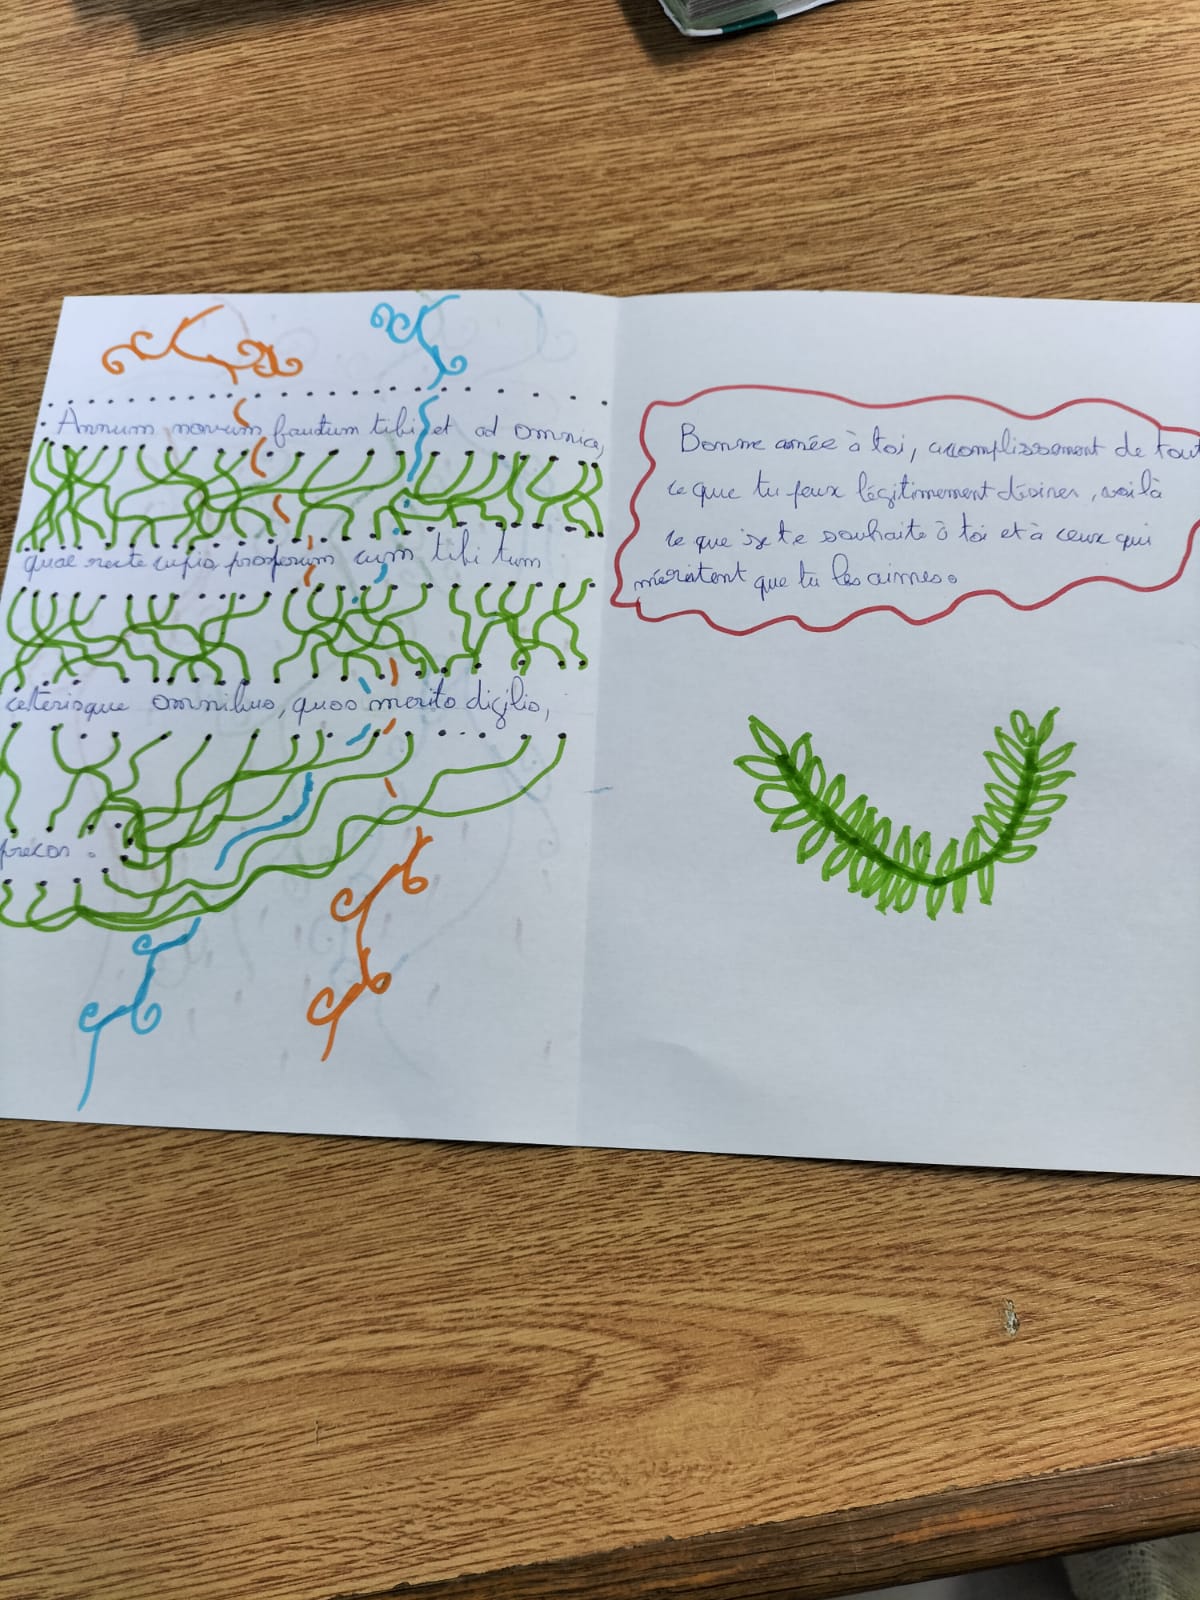 Annum novum faustum tibi et ad omnia,
quae recte cupis prosperum cum tibi tum
ceterisque omnibus, quos merito digilis,
precor.
Bonne année à toi, accomplissement de tout
ce que tu peux légitimement désirer, voilà
ce que je te souhaite à toi et à ceux qui
méritent que tu les aimes.